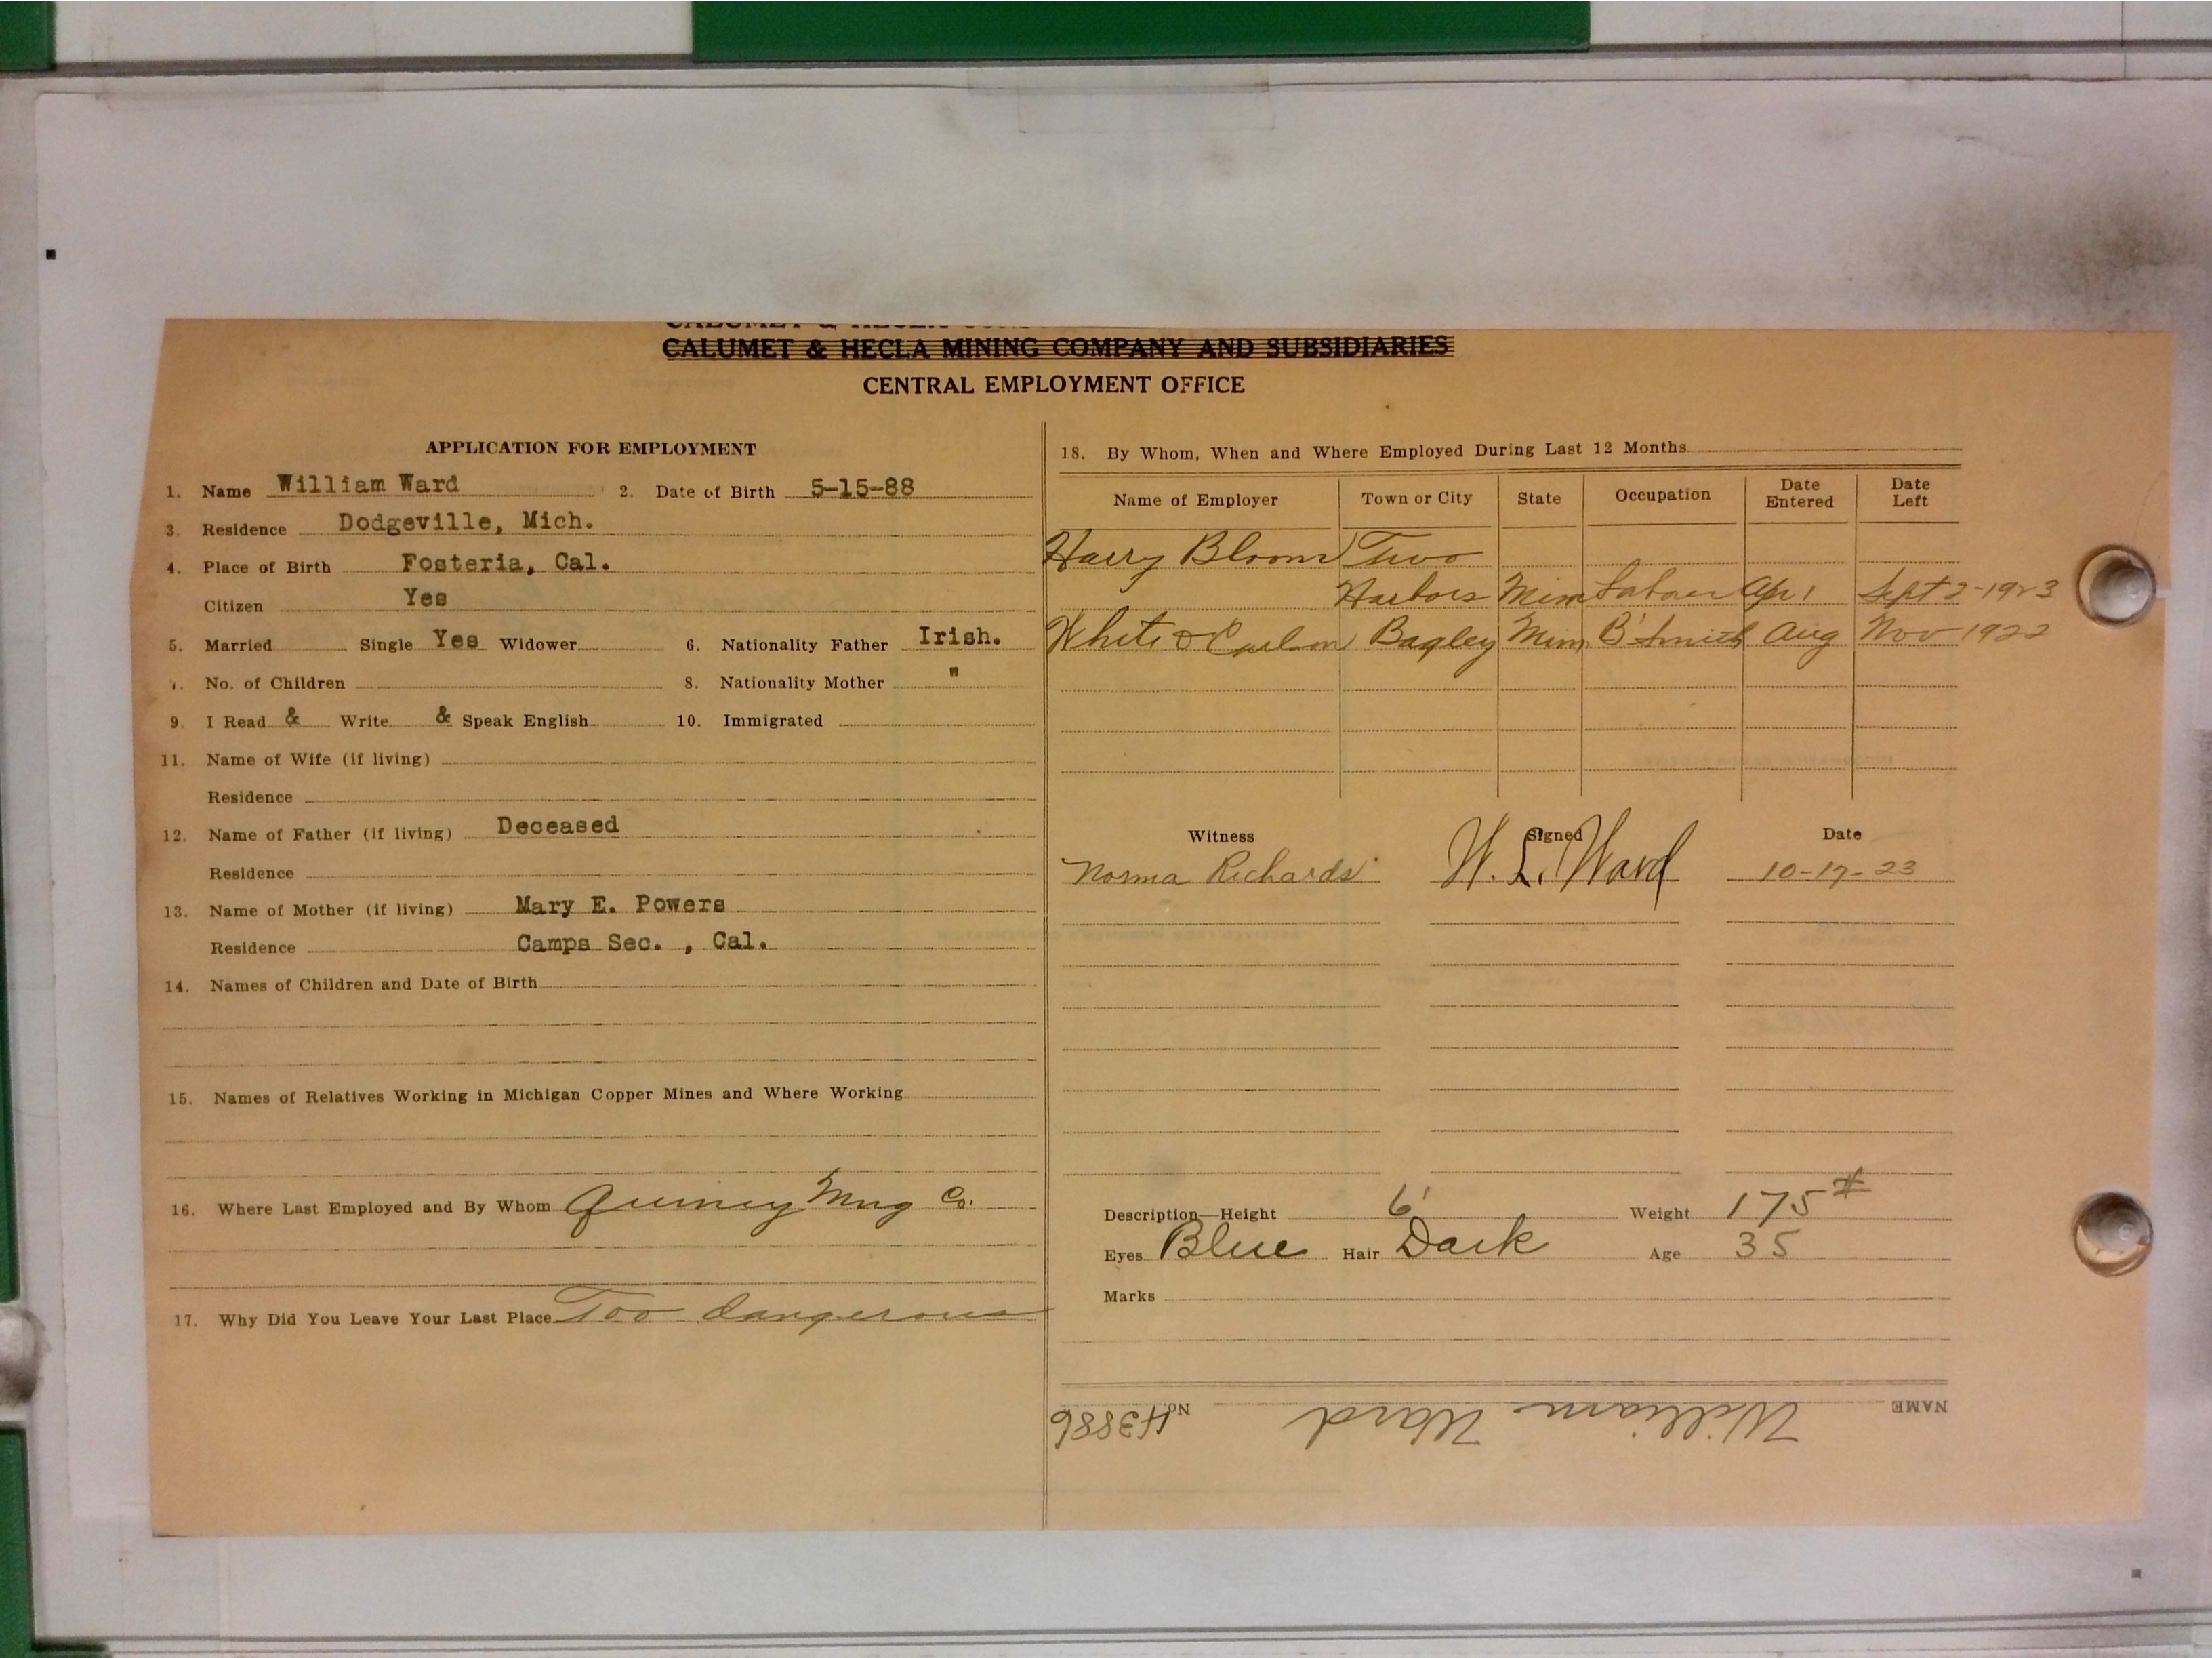 CALUMET & HECLA MINING COMPANY AND SUBSIDIARIES
CENTRAL EMPLOYMENT OFFICE
APPLICATION FOR EMPLOYMENT
1. Name William Ward 2. Date of Birth 5-15-88
3. Residence Dodgeville, Mich.
4. Place of Birth Fosteria, Cal.
Citizen Yes
5. Married Single Yes Widower 6. Nationality Father Irish.
7. No. of Children 8. Nationality Mother "
9. I Read & Write & Speak English 10. Immigrated
11. Name of Wife (if living)
Residence
12. Name of Father (if living) Deceased
Residence
13. Name of Mother (if living) Mary E. Powers
Residence Camps Sec. , Cal.
14. Names of Children and Date of Birth
15. Names of Relatives Working in Michigan Copper Mines and Where Working
16. Where Last Employed and By Whom Quincy Mng Co.
17. Why Did You Leave Your Last Place Too dangerous
18. By Whom, When and Where Employed During Last 12 Months
Name of Employer Town or City State Occupation Date Entered Date Left
Harry Bloom Two
Harbors Minn Labour Apr 1 Sept 2-1923
White & Bagley Minn B'Smith Aug Nov 1922
Witness Signed Date
Norma Richards W. L. Ward 10-17-23
Description—Height 6' Weight 175#
Eyes Blue Hair Dark Age 35
Marks
NAME William Ward No. 43886